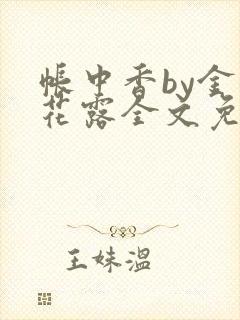 帐中香by金
花露全文免
王妹温